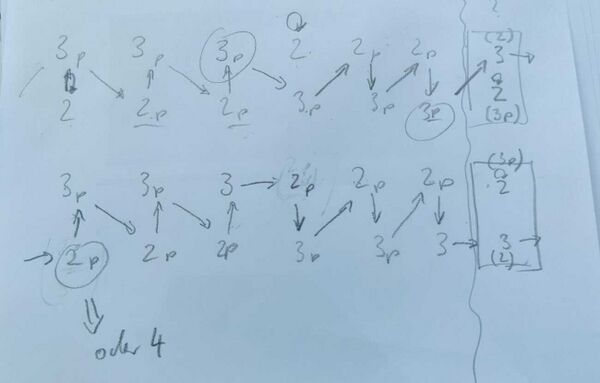 ?
3p 3p 3p 2 2p 2p (2)
3
2 2p 2p 3p 3p 3p 2
(3p)
(3p)
3p 3p 3 2p 2p 2p 2
2p 2p 2p 3p 3p 3 3
(2)
oder 4